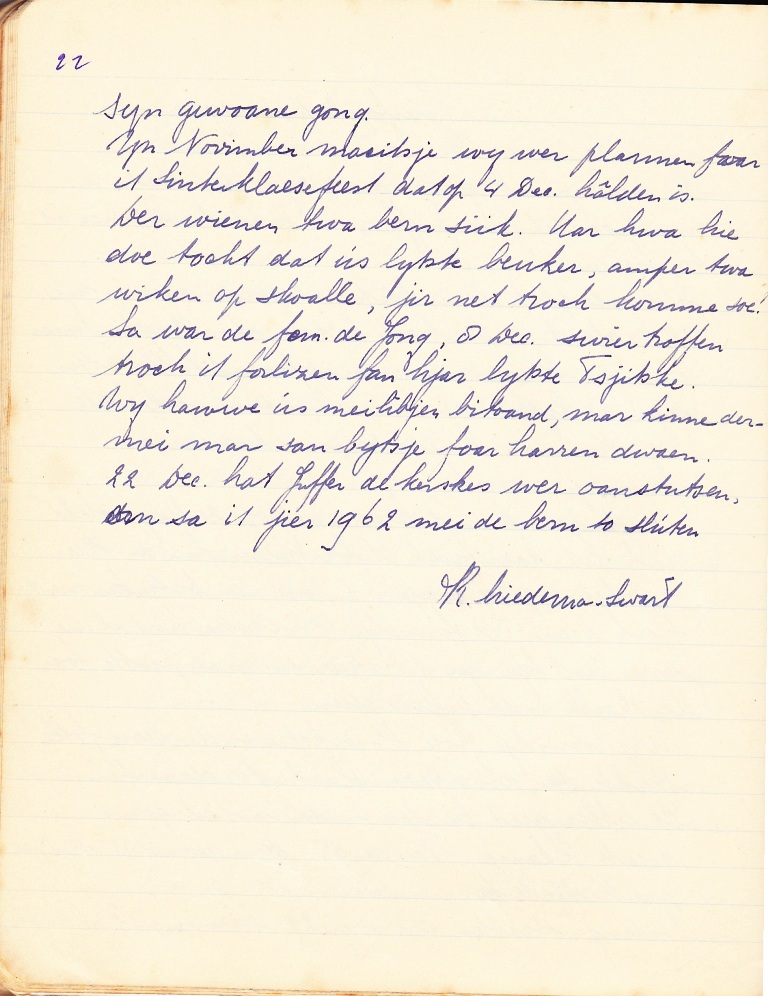 22
syn gewoane gong.
Yn Novimber maeitsje wy wer plannen foar
it Sinterklaesfeest dat op 4 Dec. hâlden is.
Der wienen twa bern siik. Mar hwa hie
doe tocht dat ús lytste beuker, amper twa
wiken op skoalle, jir net troch komme soe!
Sa war de fam. de Jong, 8 Dec. swier troffen
troch it forliezen fan hjar lytste Tsjitske.
Wy hawwe ús meilibjen bitoand, mar kinne der-
mei mar san bytsje foar harren dwaen.
22 Dec. hat Juffer de kerskes wer oanstutsen,
om sa it jier 1962 mei de bern to slúten
Hiedema-Swart